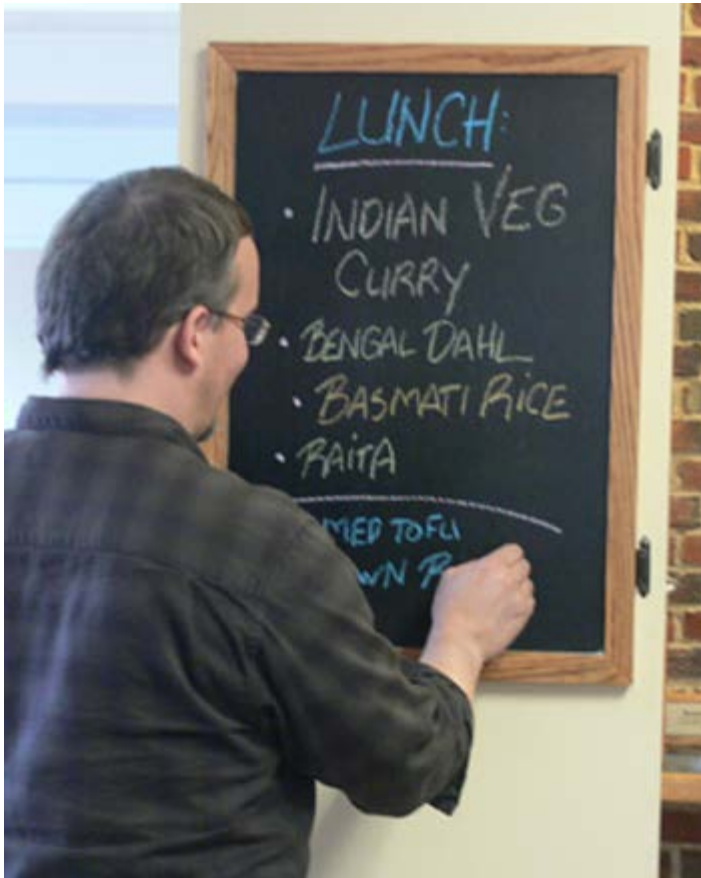 LUNCH:
• INDIAN VEG
CURRY
• BENGAL DAHL
• BASMATI RICE
• RAITA
TOFU